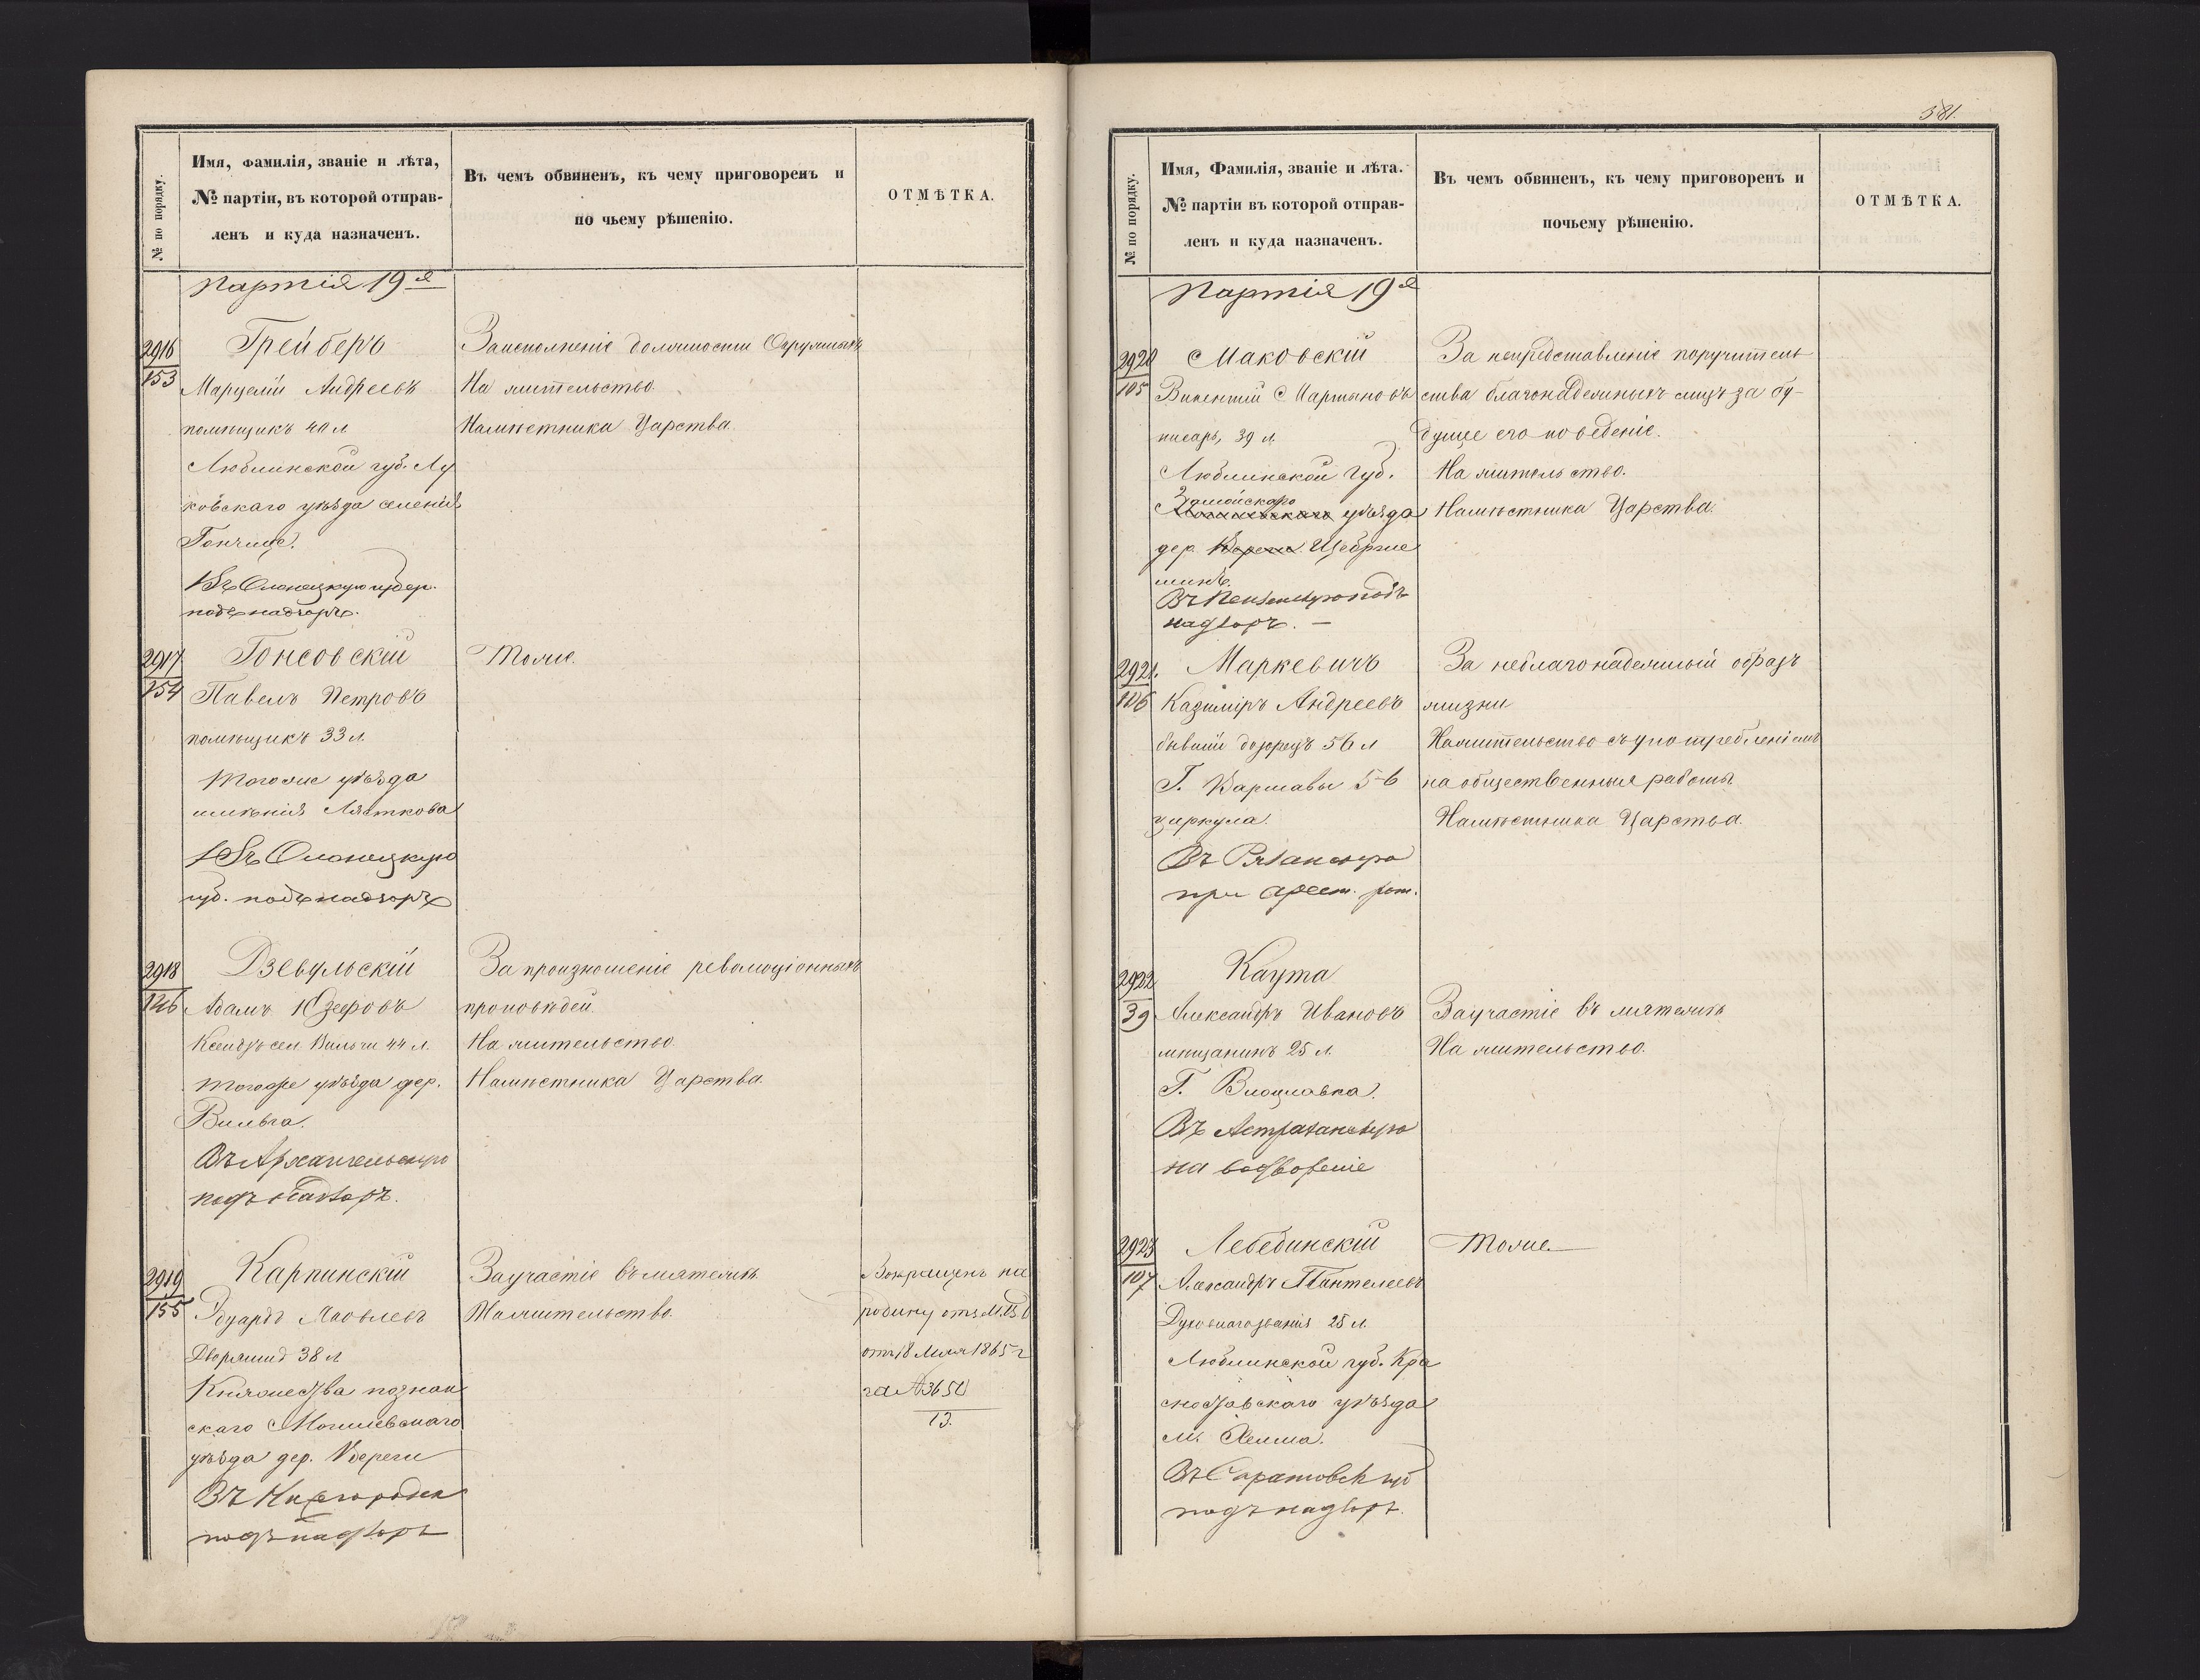 № по порядку.
Имя, Фамилія, званіе и лѣта,
№ партіи, въ которой отправ-
ленъ и куда назначенъ.
Въ чемъ обвиненъ, къ чему приговоренъ и
по чьему рѣшенію.
ОТМѢТКА.
Партія 19я
2916
153
Грейберъ
Марцелій Андреевъ
помѣщикъ 40 л
Люблинской губ. Лу
ковскаго уѣзда
Гончице.
Въ Олонецкую губер.
подъ надзоръ.
За исполненіе должности
На жительство.
Намѣстника Царства.
2917
154
Гонсовскій
Павелъ Петровъ
помѣщикъ 33 л.
Тогоже уѣзда
имѣнія
Въ Олонецкую
губ. подъ надзоръ
Тоже.
2918
126
Дзевульскій
Адамъ Юзефовъ
Ксендзъ сел. Вильги 44 л.
Тогоже уѣзда дер.
Вильга.
Въ Архангельскую
подъ надзоръ.
За произношеніе революціонныхъ
проповѣдей.
На жительство.
Намѣстника Царства.
2919
155
Карпинскій
Эдуардъ Яковлевъ
Дворянинъ 38 л
Княжества познан
скаго Могилевскаго
уѣзда дер. Береги
Въ
подъ надзоръ
За участіе въ мятежѣ.
На жительство.
Возвращенъ на
родину отз. М.В.Д
отъ 18 Мая 1865 г
за № 3650
13.
581.
№ по порядку.
Имя, Фамилія, званіе и лѣта.
№ партіи въ которой отправ-
ленъ и куда назначенъ.
Въ чемъ обвиненъ, къ чему приговоренъ и
почьему рѣшенію.
ОТМѢТКА.
Партія 19я
2920
105
Маковскій
Викентій Мартыновъ
писарь, 39 л.
Люблинской Губ.
Замойскаго
уѣзда
дер. Береги Щебрже
шинъ.
Въ Пензенскую подъ
надзоръ. —
За непредставленіе поручитель
ства благонадежныхъ лицъ за бу-
дущее его поведеніе.
На жительство.
Намѣстника Царства.
2921.
106
Маркевичъ
Казиміръ Андреевъ
бывшій дозорецъ 56 л
Г. Варшавы 5-6
циркула.
Въ Рязанскую
при арест. рот.
За неблагонадежный образъ
жизни
На жительство съ употребленіемъ
на общественныя работы
Намѣстника Царства.
2922
39
Каута
Александръ Ивановъ
мѣщанинъ 25 л.
Г. Влоцлавка.
Въ Астраханскую
на водвореніе
За участіе въ мятежѣ
На жительство.
2923
107
Лебединскій
Александръ Пантелеевъ
Духовнаго званія 25 л.
Люблинской губ. Кра
ноставскаго уѣзда
м. Хелма.
Въ Саратовскую
подъ надзоръ.
Тоже.